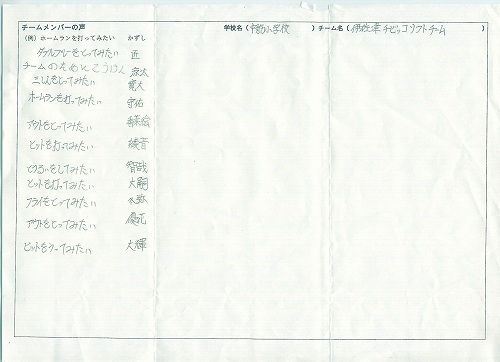 チームメンバーの声 学校名（ 小学校 ）チーム名（ チビッコソフトチーム ）
（例）ホームランを打ってみたい かずし
ダブルプレーをとってみたい 匠
チームのためにこうけん 涼太
三しんをとってみたい 寛大
ホームランを打ってみたい 宇佑
アウトをとってみたい
ヒットを打ってみたい 綾音
とうるいをしてみたい 智哉
ヒットを打ってみたい 大嗣
フライをとってみたい
アウトをとってみたい 優花
ヒットをうってみたい 大輝